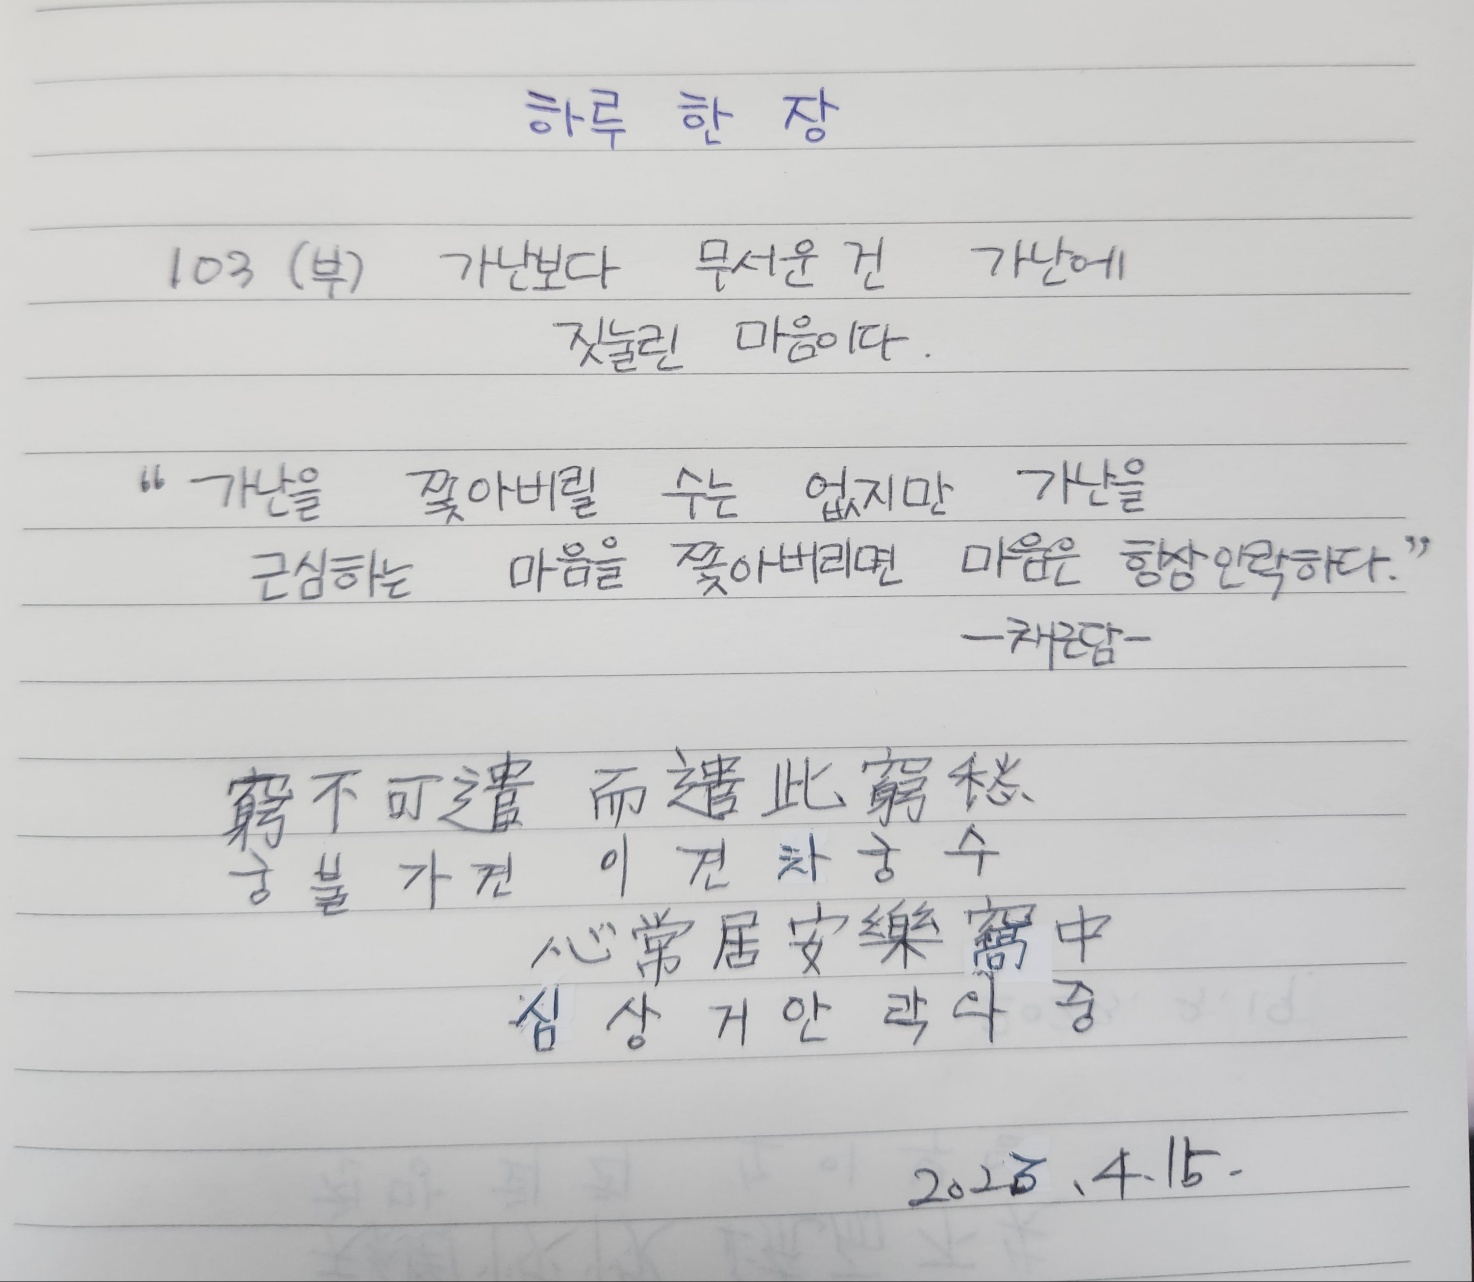 하루 한 장
103 (부) 가난보다 무서운 건 가난에
짓눌린 마음이다.
“가난을 쫓아버릴 수는 없지만 가난을
근심하는 마음을 쫓아버리면 마음은 항상 안락하다.”
-채근담-
窮不可遣 而遣此窮愁
궁불가견 이견차궁수
心常居安樂窩中
심상거안락와중
2023.4.15.